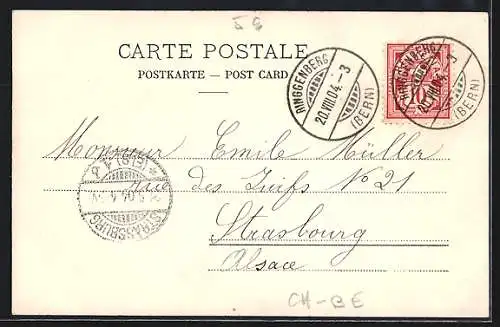 5 8
CARTE POSTALE
POSTKARTE — POST CARD
RINGGENBERG
20.VIII.04.-3
(BERN)
RINGGENBERG
20.VIII.04.-3
(BERN)
10
Monsieur Emile Müller
rue des Juifs N° 21
Strasbourg
Alsace
STRASSBURG
(ELS)
CH-BE